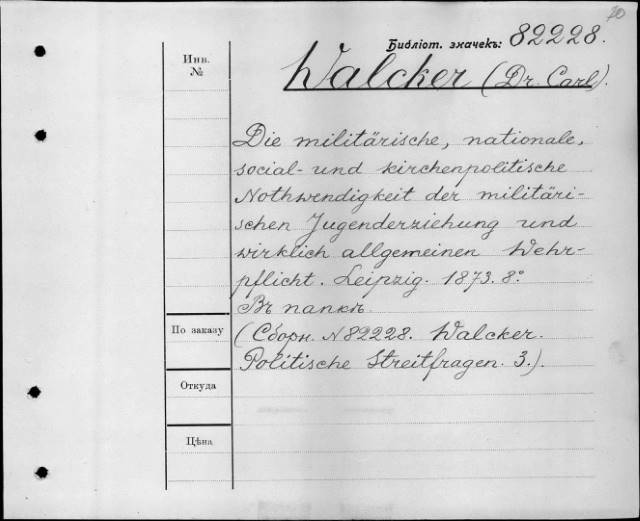 20
Библіот. значекъ: 82228.
Инв.
№
Walcker (Dr. Carl).
Die militärische, nationale,
social- und kirchenpolitische
Nothwendigkeit der militäri-
schen Jugenderziehung und
wirklich allgemeinen Wehr-
pflicht. Leipzig. 1873. 8°
Въ папкѣ.
По заказу
(Сборн. N 82228. Walcker.
Politische Streitfragen. 3.).
Откуда
Цѣна